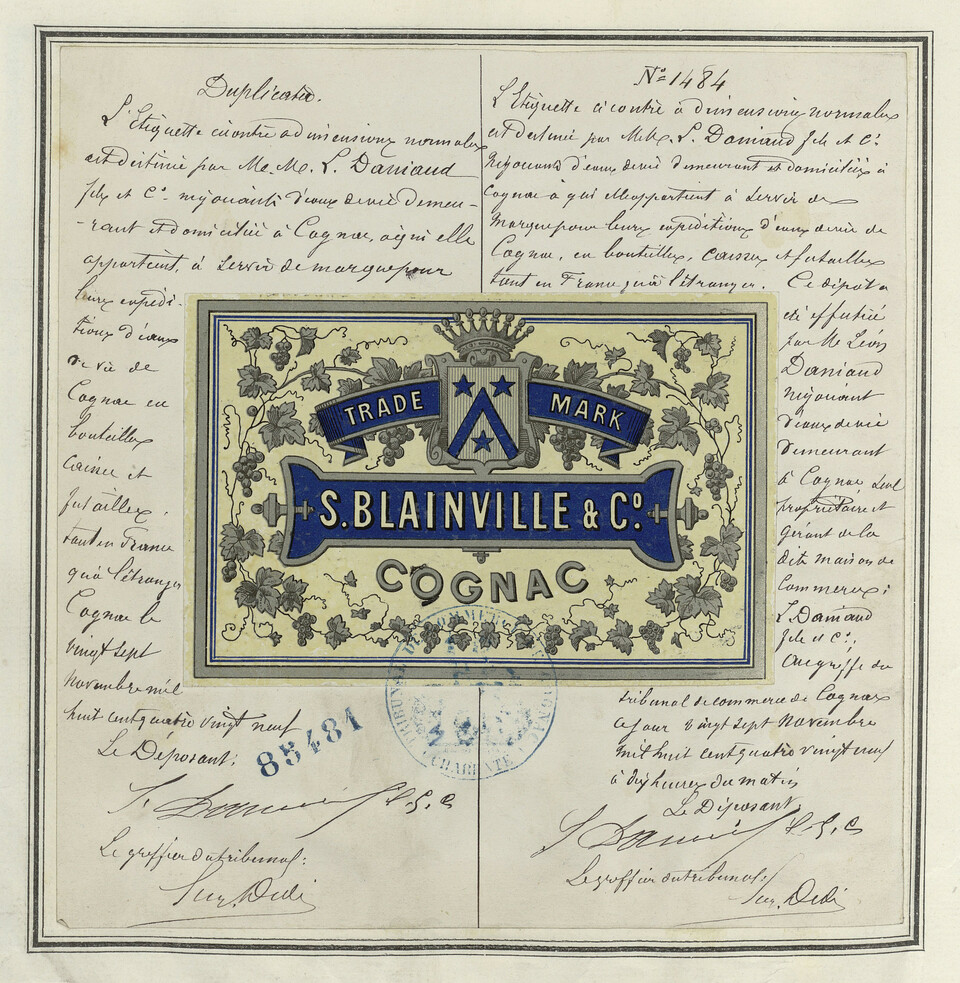 Duplicata.
L'Etiquette ci contre a dimensions normales
est destinée par Me. M. L. Daniaud
fils et Cᵉ négociants d'eaux de vie demeu-
-rant et domiciliés à Cognac, à qui elle
appartient, à servir de marque pour
leurs expédi-
tions d'eaux
de vie de
Cognac en
bouteilles
caisses et
futailles,
tant en France
qu'à l'étranger
Cognac le
vingt sept
novembre mil
huit cent quatre vingt neuf
Le Déposant:
L. Daniaud
Le greffier du tribunal:
85481
Nº 1484
L'Etiquette ci contre à dimensions normales
est destinée par MeM. L. Daniaud fils et Cᵉ
négociants d'eaux de vie demeurant et domiciliés à
Cognac à qui elle appartient à servir de
marque pour leurs expéditions d'eaux de vie de
Cognac, en bouteilles, caisses et futailles
tant en France qu'à l'étranger. Ce dépôt a
été effectué
par Me Léon
Daniaud
négociant
d'eaux de vie
demeurant
à Cognac seul
propriétaire et
gérant de la
dite maison de
Commerce:
L. Daniaud
fils et Cᵉ,
au greffe du
tribunal de commerce de Cognac
ce jour vingt sept novembre
mil huit cent quatre vingt neuf
à dix heures du matin
Le Déposant,
L. Daniaud
Le greffier du tribunal:
TRADE MARK
S. BLAINVILLE & Cº
COGNAC
TRIBUNAL DE COMMERCE COGNAC
CHARENTE